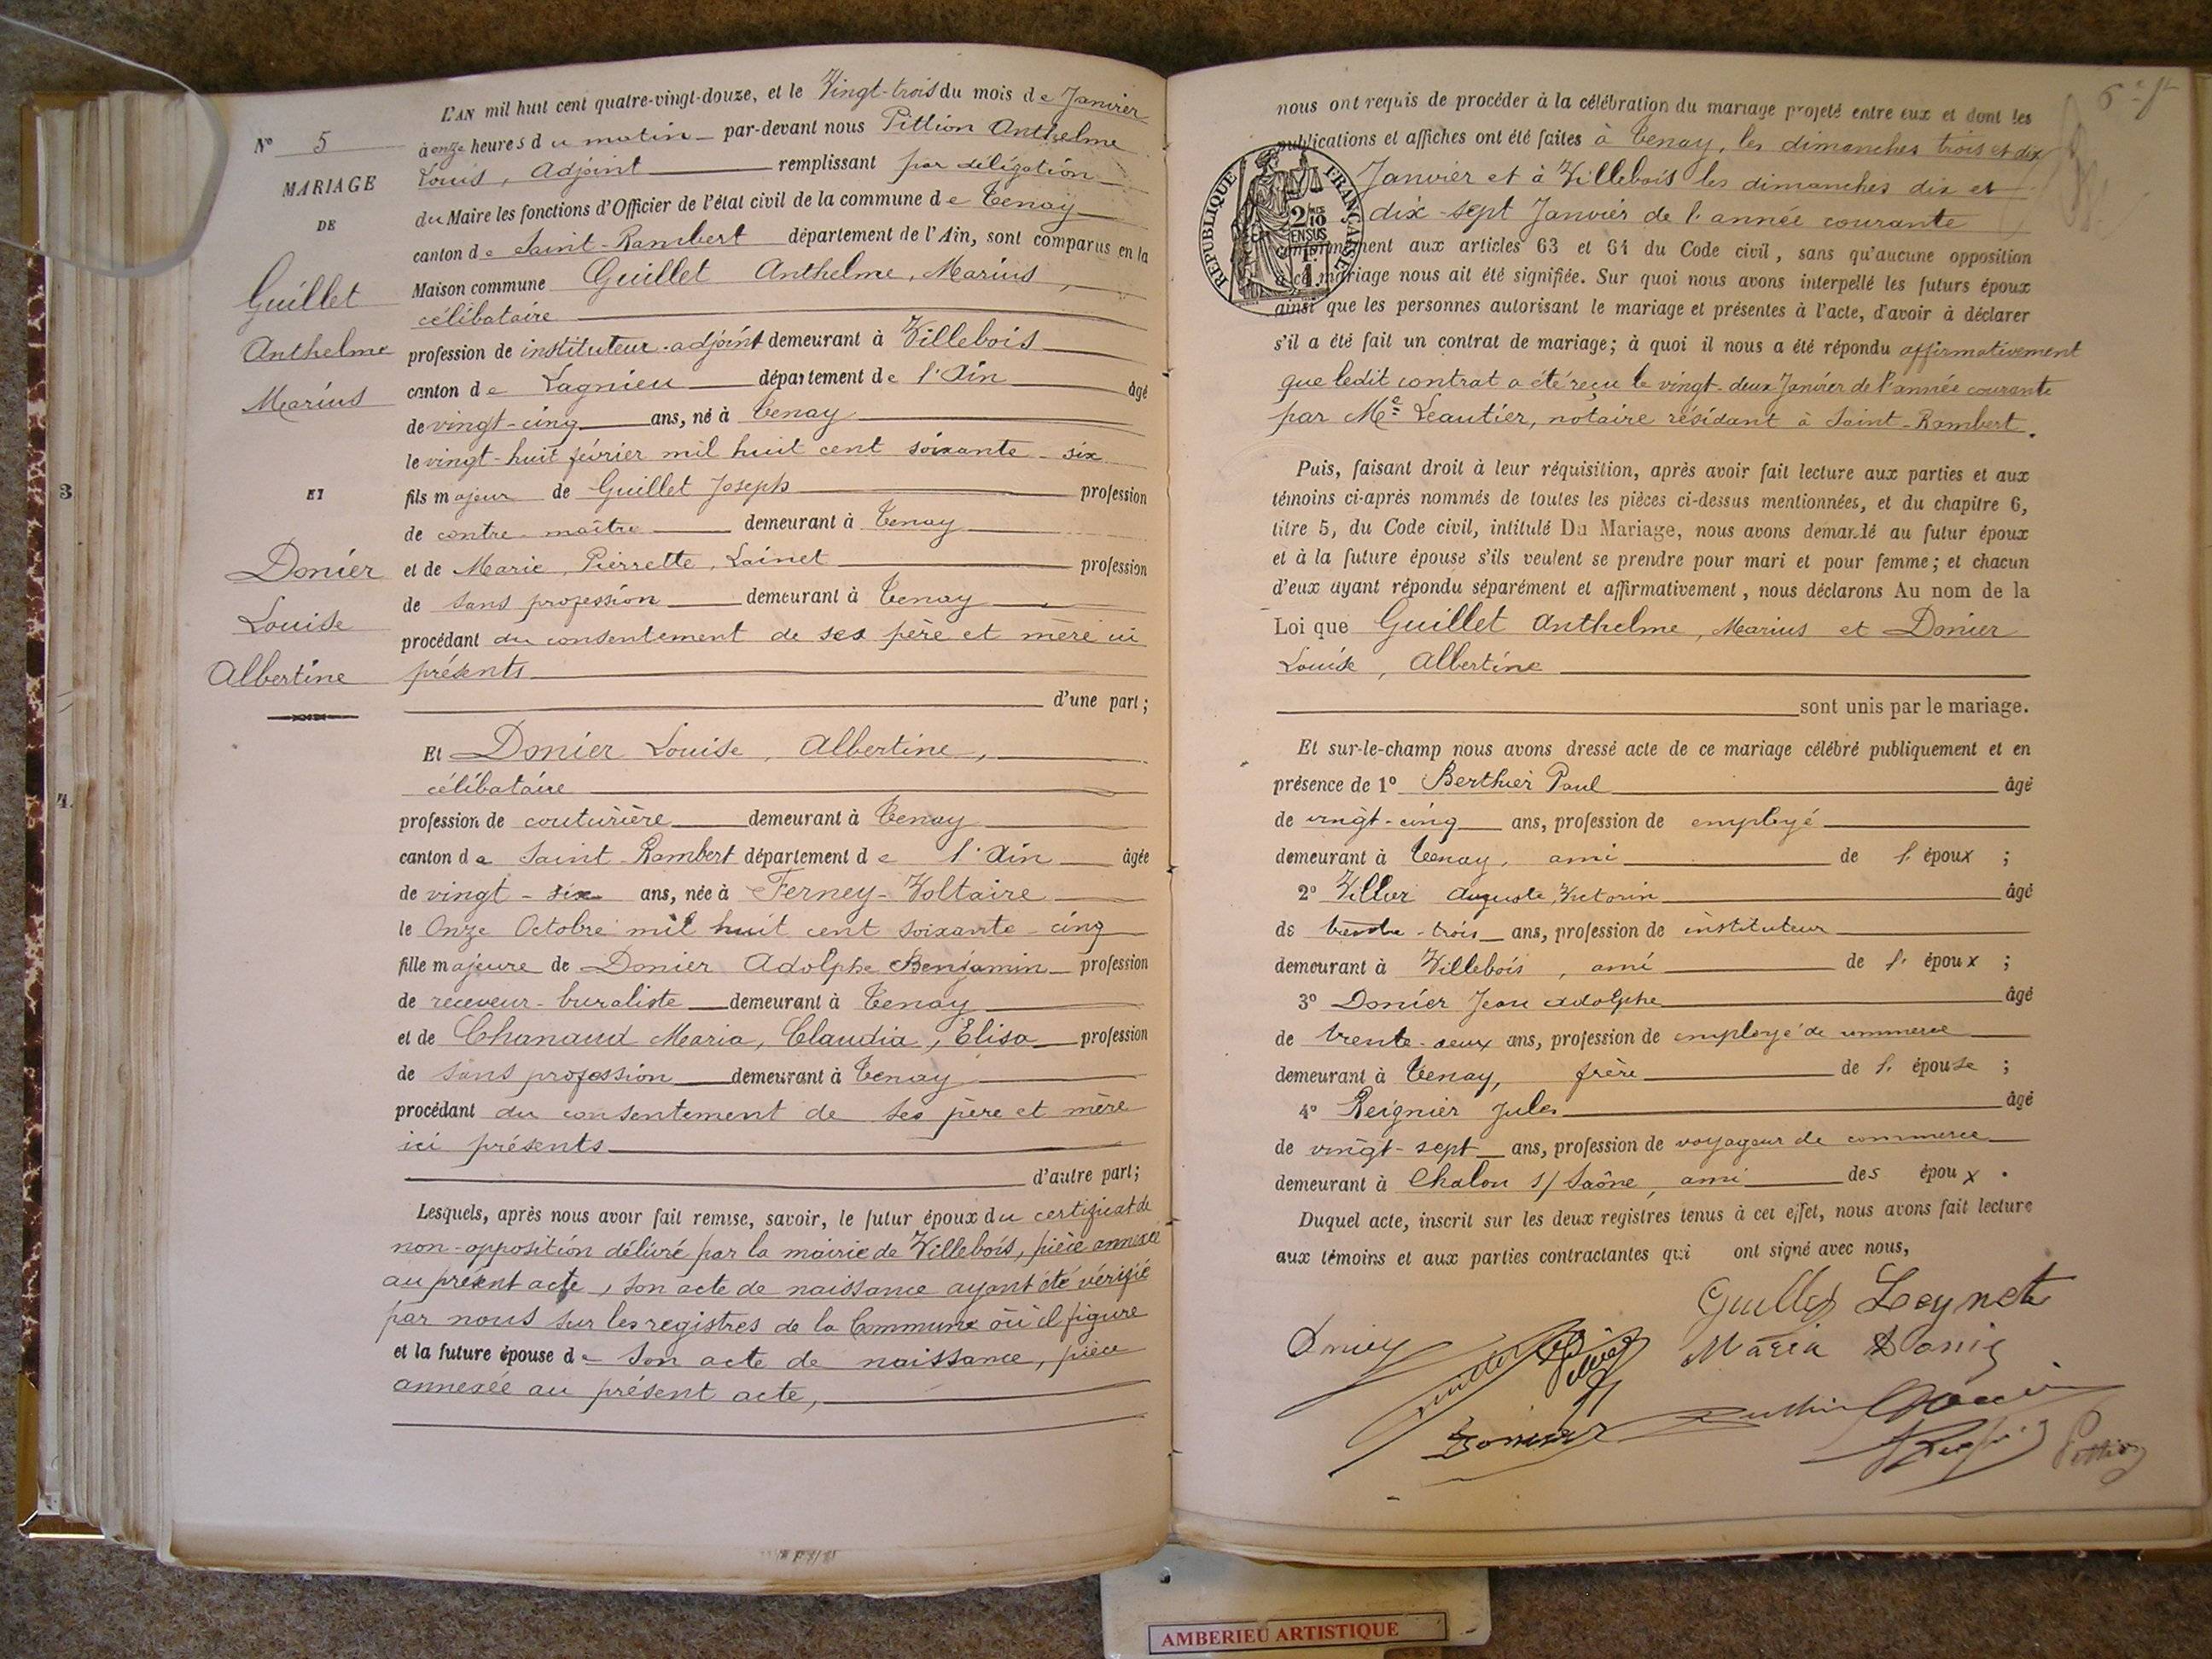 L'AN mil huit cent quatre-vingt-douze, et le Vingt-trois du mois de Janvier
à onze heures du matin par-devant nous Pittion Anthelme
Louis, Adjoint remplissant par délégation
du Maire les fonctions d'Officier de l'état civil de la commune de Tenay
canton de Saint-Rambert département de l'Ain, sont comparus en la
Maison commune Guillet Anthelme, Marius,
célibataire
profession de instituteur-adjoint demeurant à Villebois
canton de Lagnieu département de l'Ain âgé
de vingt-cinq ans, né à Tenay
le vingt-huit février mil huit cent soixante-six
fils majeur de Guillet Joseph profession
de contre-maître demeurant à Tenay
et de Marie, Pierrette, Lainet profession
de sans profession demeurant à Tenay
procédant du consentement de ses père et mère ici
présents
d'une part;
Et Donier Louise, Albertine,
célibataire
profession de couturière demeurant à Tenay
canton de Saint-Rambert département de l'Ain âgée
de vingt-six ans, née à Ferney-Voltaire
le Onze Octobre mil huit cent soixante-cinq
fille majeure de Donier Adolphe Benjamin profession
de receveur-buraliste demeurant à Tenay
et de Chanaud Maria, Claudia, Elisa profession
de sans profession demeurant à Tenay
procédant du consentement de ses père et mère
ici présents
d'autre part;
Lesquels, après nous avoir fait remise, savoir, le futur époux du certificat de
non-opposition délivré par la mairie de Villebois, pièce annexée
au présent acte, son acte de naissance ayant été vérifié
par nous sur les registres de la Commune où il figure
et la future épouse de son acte de naissance, pièce
annexée au présent acte,
N° 5
MARIAGE
DE
Guillet
Anthelme
Marius
ET
Donier
Louise
Albertine
3
4.
nous ont requis de procéder à la célébration du mariage projeté entre eux et dont les
publications et affiches ont été faites à Tenay, les dimanches trois et dix
Janvier et à Villebois les dimanches dix et
dix-sept Janvier de l'année courante
conformément aux articles 63 et 64 du Code civil, sans qu'aucune opposition
à ce mariage nous ait été signifiée. Sur quoi nous avons interpellé les futurs époux
ainsi que les personnes autorisant le mariage et présentes à l'acte, d'avoir à déclarer
s'il a été fait un contrat de mariage; à quoi il nous a été répondu affirmativement
que ledit contrat a été reçu le vingt-deux Janvier de l'année courante
par Me Leautier, notaire résidant à Saint-Rambert.
Puis, faisant droit à leur réquisition, après avoir fait lecture aux parties et aux
témoins ci-après nommés de toutes les pièces ci-dessus mentionnées, et du chapitre 6,
titre 5, du Code civil, intitulé Du Mariage, nous avons demandé au futur époux
et à la future épouse s'ils veulent se prendre pour mari et pour femme; et chacun
d'eux ayant répondu séparément et affirmativement, nous déclarons Au nom de la
Loi que Guillet Anthelme, Marius et Donier
Louise, Albertine
sont unis par le mariage.
Et sur-le-champ nous avons dressé acte de ce mariage célébré publiquement et en
présence de 1° Berthier Paul âgé
de vingt-cinq ans, profession de employé
demeurant à Tenay, ami de l'époux;
2° Auguste, Victorin âgé
de trente-trois ans, profession de instituteur
demeurant à Villebois, ami de l'époux;
3° Donier Jean Adolphe âgé
de trente-deux ans, profession de employé de commerce
demeurant à Tenay, frère de l'épouse;
4° Reignier Jules âgé
de vingt-sept ans, profession de voyageur de commerce
demeurant à Chalon s/ Saône, ami des époux.
Duquel acte, inscrit sur les deux registres tenus à cet effet, nous avons fait lecture
aux témoins et aux parties contractantes qui ont signé avec nous,
Guillet Leynet
Maria Donier
Donier
Pittion
RÉPUBLIQUE FRANÇAISE
2/10 EN SUS
AMBERIEU ARTISTIQUE